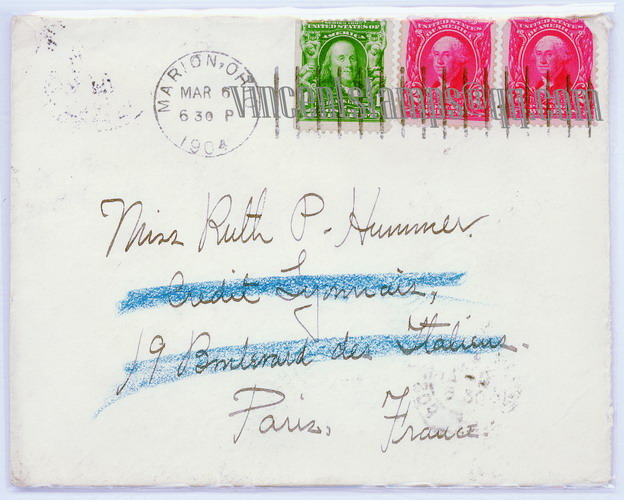 UNITED STATES OF
AMERICA
UNITED STATES
OF AMERICA
UNITED STATES
OF AMERICA
MARION, OH
MAR 6
6 30 P
1904
vincentstamps@qq.com
Miss Ruth P. Hummer.
Credit Lyonnais,
19 Boulevard des Italiens.
Paris, France.